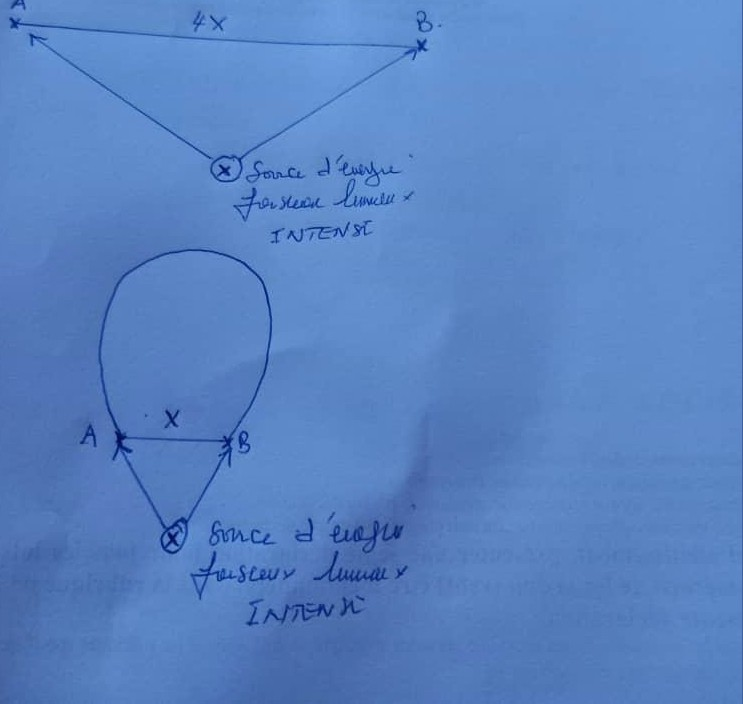 A
4X
B.
Source d'énergie
faisceau lumineux
INTENSE
X
A
B
Source d'énergie
faisceaux lumineux
INTENSE